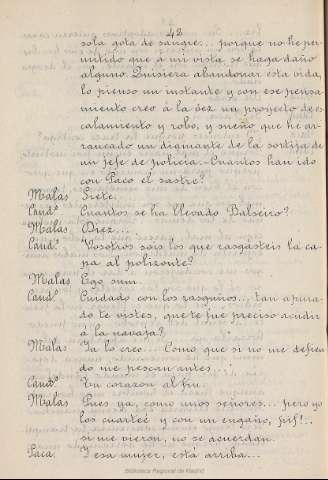 42
sola gota de sangre... porque no he per-
mitido que á mi vista se haga daño
alguno. Quisiera abandonar esta vida,
lo pienso un instante y con ese pensa-
miento creo á la vez un proyecto de es-
calamiento y robo, y sueño que he ar-
rancado un diamante de la sortija de
un jefe de policia. - Cuantos han ido
con Paco el sastre?
Malas Siete.
Candº Cuantos se ha llevado Balseiro?
Malas Diez....
Candº Vosotros sois los que rasgásteis la ca-
pa al polizonte?
Malas Ego sum.
Candº Cuidado con los rasguños... tan apura-
do te vistes, que te fue preciso acudir
á la navaja?
Malas Ya lo creo... Como que si no me defien-
do me pescan antes...
Candº Tu corazon al fin.
Malas Pues ya, como unos señores... pero yo
los cuarteé y con un engaño, pif!..
si me vieron, no se acuerdan.
Paca. Y esa mujer, está arriba...
Biblioteca Regional de Madrid